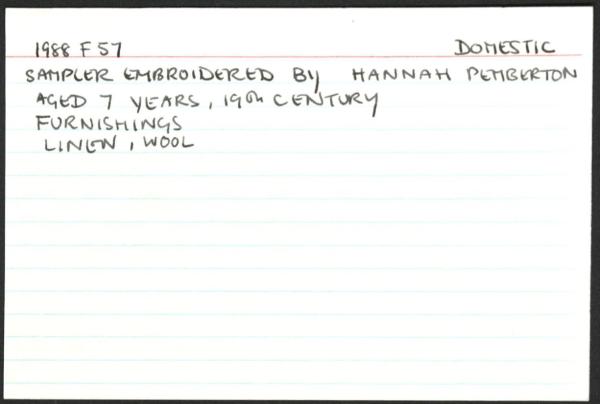 1988 F 57 DOMESTIC
SAMPLER EMBROIDERED BY HANNAH PEMBERTON
AGED 7 YEARS, 19th CENTURY
FURNISHINGS
LINEN, WOOL